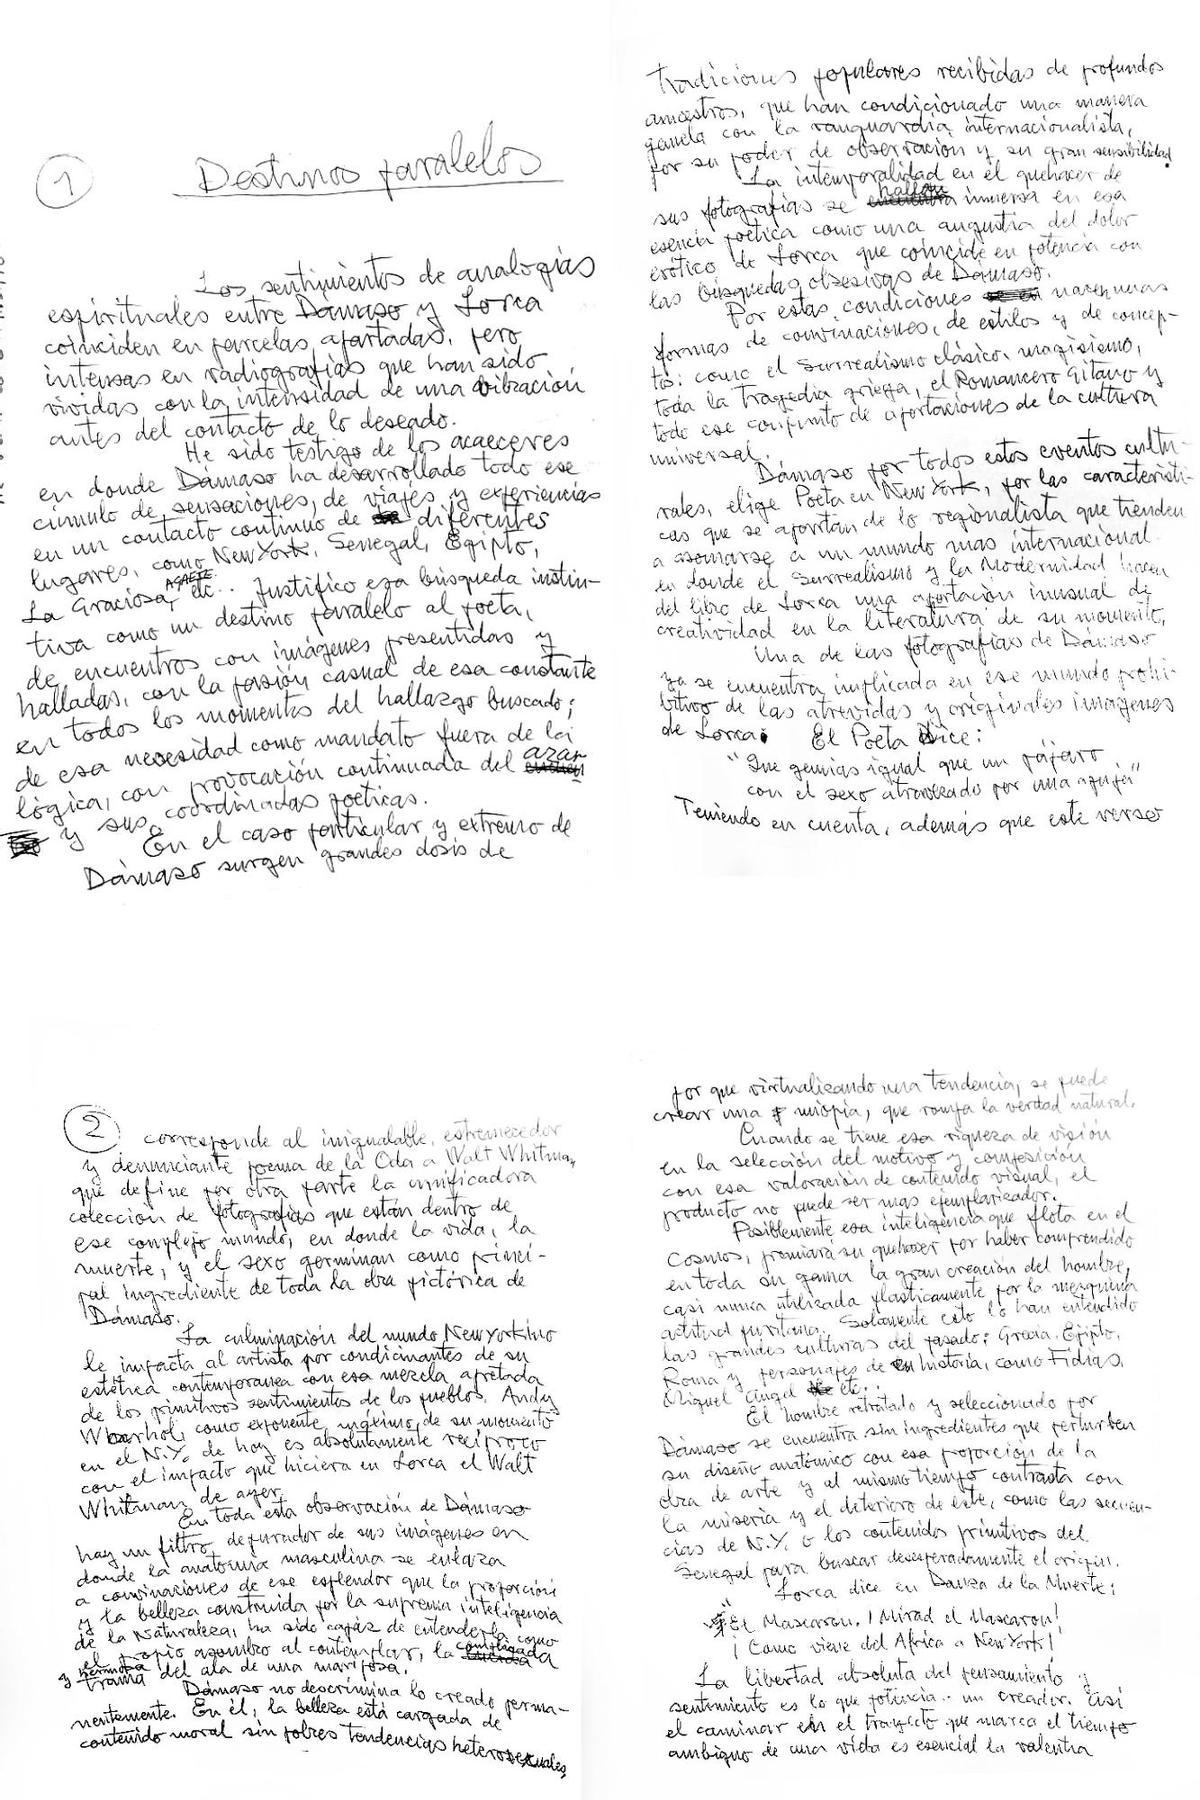 1
Destinos paralelos
Los sentimientos de analogías
espirituales entre Dámaso y Lorca
coinciden en parcelas, apartadas, pero
intensas en radiografías que han sido
vividas con la intensidad de una vibración
antes del contacto de lo deseado.
He sido testigo de los acaeceres
en donde Dámaso ha desarrollado todo ese
cúmulo de sensaciones, de viajes y experiencias
en un contacto continuo de diferentes
lugares, como New York, Senegal, Egipto,
La Graciosa, AGAETE etc.. Justifico esa búsqueda instin-
tiva como un destino paralelo al poeta,
de encuentros con imágenes presentidas y
halladas, con la pasión casual de esa constante
en todos los momentos del hallazgo buscado;
de esa necesidad como mandato fuera de la
lógica, con provocación continuada del azar
y sus coordinadas poéticas.
En el caso particular y extremo de
Dámaso surgen grandes dosis de
tradiciones populares recibidas de profundos
ancestros, que han condicionado una manera
gemela con la vanguardia internacionalista,
por su poder de observación y su gran sensibilidad.
La intemporalidad en el quehacer de
sus fotografías se halla inmersa en esa
esencia poética como una angustia del dolor
erótico de Lorca que coincide en potencia con
las búsquedas obsesivas de Dámaso.
Por estas condiciones nacen unas
formas de convinaciones, de estilos y de concep-
tos: como el surrealismo clásico, magisismo,
toda la tragedia griega, el Romancero Gitano y
todo ese conjunto de aportaciones de la cultura
universal.
Dámaso por todos estos eventos cultu-
rales, elige Poeta en New York, por las característi-
cas que se aportan de lo regionalista que tienden
a asomarse a un mundo mas internacional
en donde el surrealismo y la Modernidad hacen
del libro de Lorca una aportación inusual de
creatividad en la literatura de su momento,
Una de las fotografías de Dámaso
ya se encuentra implicada en ese mundo prohi-
bitivo de las atrevidas y originales imágenes
de Lorca. El Poeta Dice:
"Que gemias igual que un pájaro
con el sexo atravezado por una aguja"
Teniendo en cuenta, además que este verso
2 corresponde al inigualable, estremecedor
y denunciante poema de la Oda a Walt Whitman,
que define por otra parte la unificadora
colección de fotografías que están dentro de
ese complejo mundo, en donde la vida, la
muerte, y el sexo germinan como princi-
pal ingrediente de toda la obra pictórica de
Dámaso.
La culminación del mundo Newyorkino
le impacta al artista por condicinantes de su
estética contemporanea con esa mezcla apretada
de los primitivos sentimientos de los pueblos. Andy
Wharhol, como exponente máximo de su momento
en el N.Y. de hoy es absolutamente recíproco
con el impacto que hiciera en Lorca el Walt
Whitman de ayer.
En toda esta observación de Dámaso
hay un filtro depurador de sus imágenes en
donde la anatomia masculina se enlaza
a convinaciones de ese esplendor que la proporción
y la belleza construida por la suprema inteligencia
de la Naturaleza, ha sido capáz de entenderla como
el propio asombro al contemplar, la complicada
y hermosa trama del ala de una mariposa.
Dámaso no descrimina lo creado perma-
nentemente. En él, la belleza está cargada de
contenido moral sin pobres tendencias heterosexuales,
por que virtualizando una tendencia, se puede
crear una miopia, que rompa la verdad natural.
Cuando se tiene esa riqueza de visión
en la selección del motivo y composición
con esa valoración de contenido visual, el
producto no puede ser mas ejemplarizador.
Posiblemente esa inteligencia que flota en el
Cosmos, premiará su quehacer por haber comprendido
en toda su gama la gran creación del hombre,
casi nunca utilizada plasticamente por la mezquina
actitud puritana. Solamente esto lo han entendido
las grandes culturas del pasado: Grecia. Egipto,
Roma y personajes de historia, como Fidias,
Miguel Angel etc..
El hombre retratado y seleccionado por
Dámaso se encuentra sin ingredientes que perturben
su diseño anatómico con esa proporción de la
obra de arte y al mismo tiempo contrasta con
la miseria y el deterioro de éste, como las secuen-
cias de N.Y. o los contenidos primitivos del
Senegal para buscar desesperadamente el origen.
Lorca dice en Danza de la Muerte:
"El Mascaron. ¡Mirad el Mascaron!
¡Como viene del Africa a New York!
La libertad absoluta del pensamiento y
sentimiento es lo que potencia.. un creador. Así
el caminar en el trayecto que marca el tiempo
ambiguo de una vida es esencial la valentia